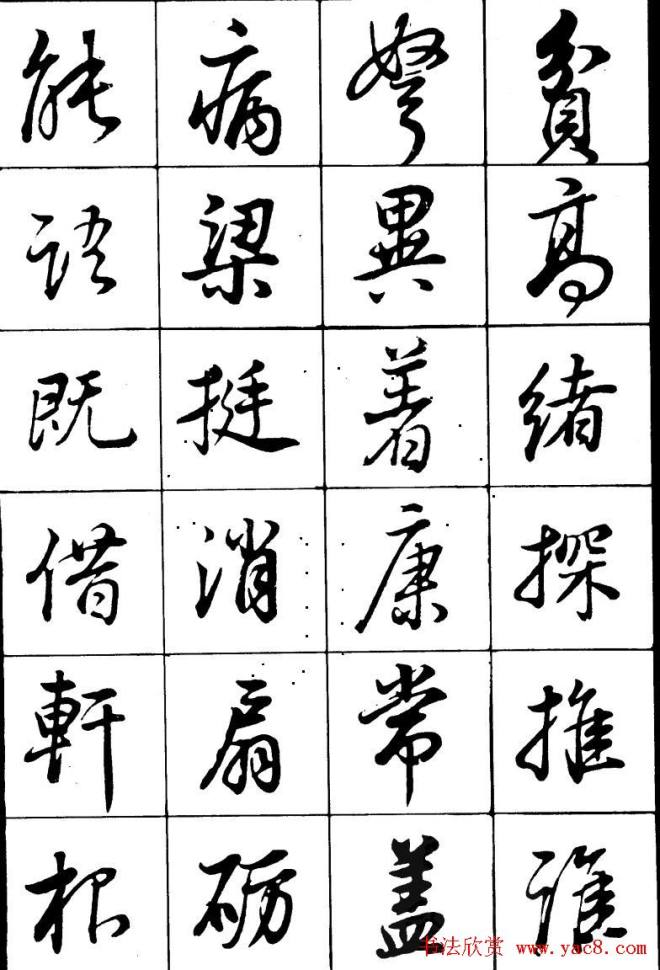 能 病 弩 貧
语 梁 異 高
既 挺 着 绪
借 消 康 探
軒 扇 常 推
根 砺 盖 谁
书法欣赏 www.yac8.com